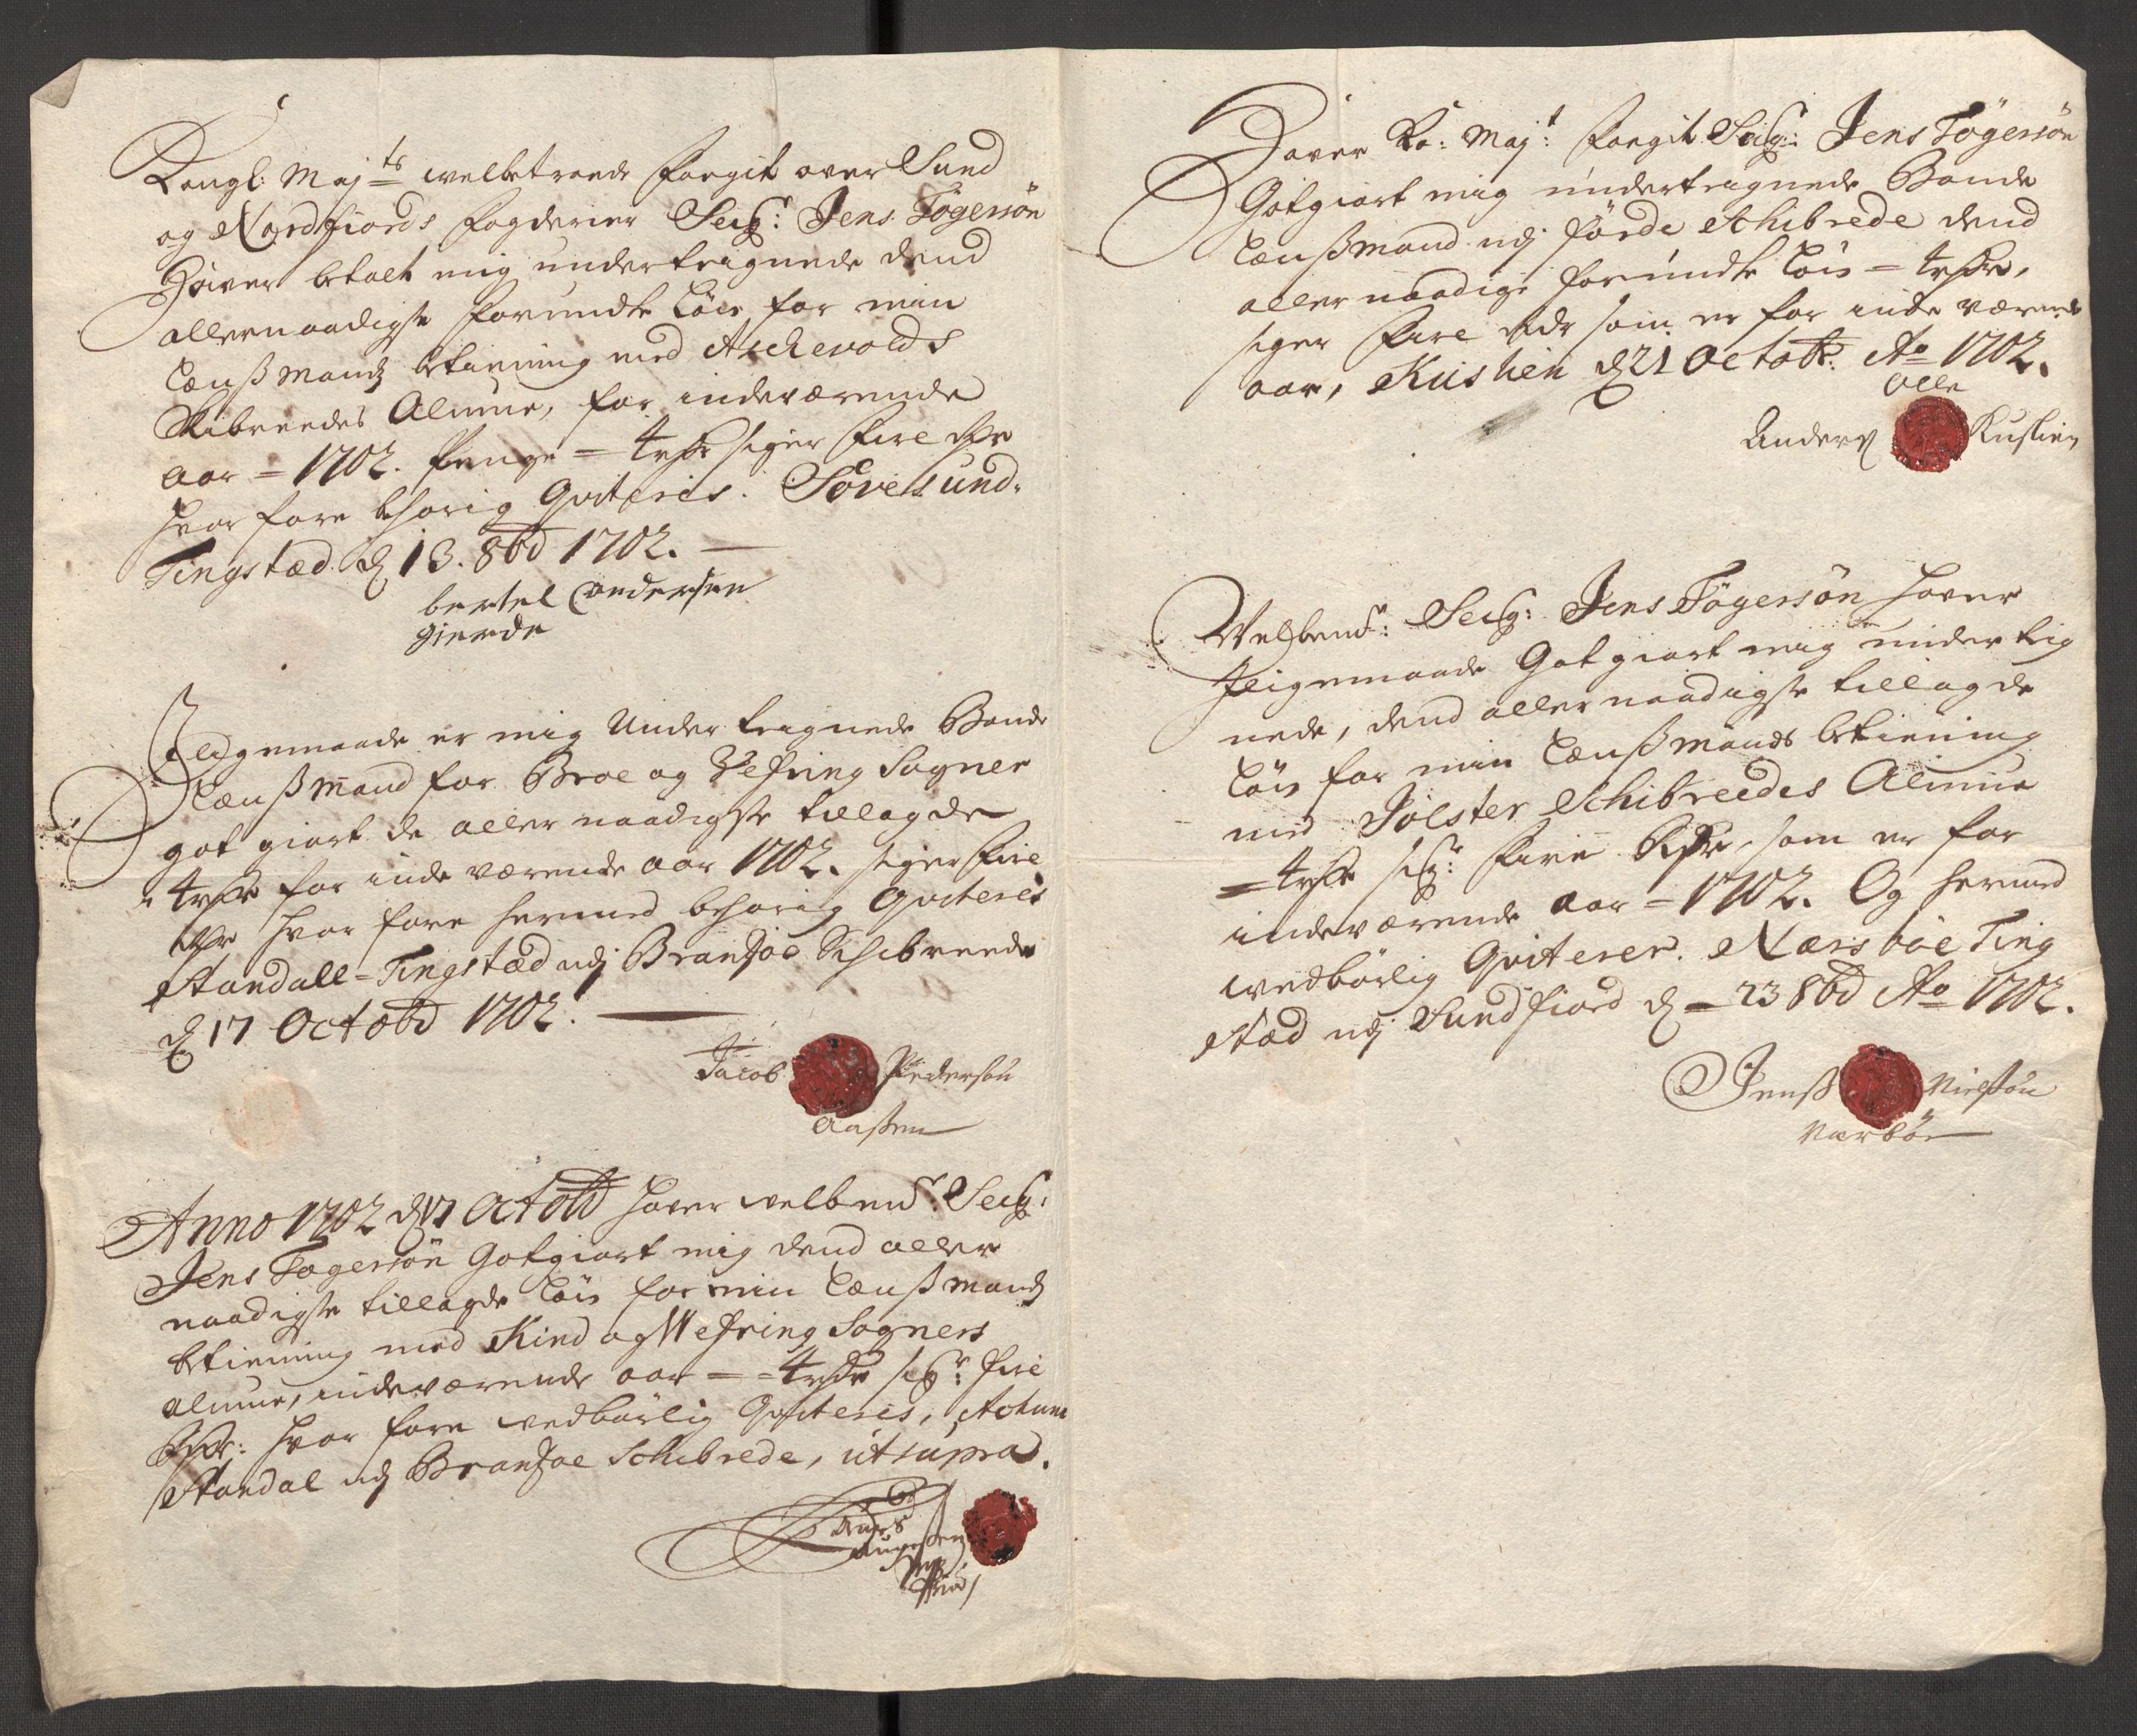 Kongl: Maj:ts welbetroede Foegit over Sund
og Nordfiords Fogderier Seig:r Jens Tögersön
Haver betalt mig undertegnede dend
allernaadigste Forundte Löen for min
Lænßmands betiening med Aschevolds
Skibreedes Almue, for indeværende
aar = 1702. Penge = 4 rdr siger Fire rdr
hvor fore behörig Qviteres. Sövelsund-
Tingstæd d 13. 8bd 1702.
bertel andersen
gierde
Iligemaade er mig Under tegnede Bonde
Lænßmand for Broe og Vefring Sogner
got giort de aller naadigste tillagde
4 rdr for inde værende aar 1702. siger Fire
rdr hvor fore hermed behörig Qviteres
Standall-Tingstæd udj Bransöe Schibreede
d 17 Octobd 1702.
Jacob Piedersön
Aaßen
Anno 1702 d 17 Octobd haver welbem:te Seig:r
Jens Tögersön Gotgiort mig dend aller
naadigste tillagde Löen for min Lænß mands
betiening med Kind og Wefring Sogners
almue, indeværende aar = 4 rdr sig:r Fire
Rdr: hvor fore wedbörlig Qviteres, Actum
Standal udj Bransöe Schibrede, ut supra.
Anders
Haver Ko: Maj:t Foegit Seig:r Jens Tögersön
Gotgiort mig undertegnede Bonde
Lænßmand udj Förde Schibrede dend
allernaadigst forundte Löen = 4 rdr,
siger Fire rdr som er for inde værende
aar, Kuslien d 21 Octobr: Ao 1702.
Olle
Anders Kuslien
Welbem:te Seig:r Jens Tögersön haver
Iligemaade Got giort mig underteg
nede, dend aller naadigste tillagde
Löen for min Lænßmands betiening
med Jölster Schibreedes Almue
= 4 rdr sig:r Fire Rdr, som er for
indeværende aar = 1702. Og hermed
wedbörlig Qviterer. Nærsböe Ting
stæd udj Sundfiord d = 23 8bd Ao 1702.
Jenß Nielsön
Nærböe